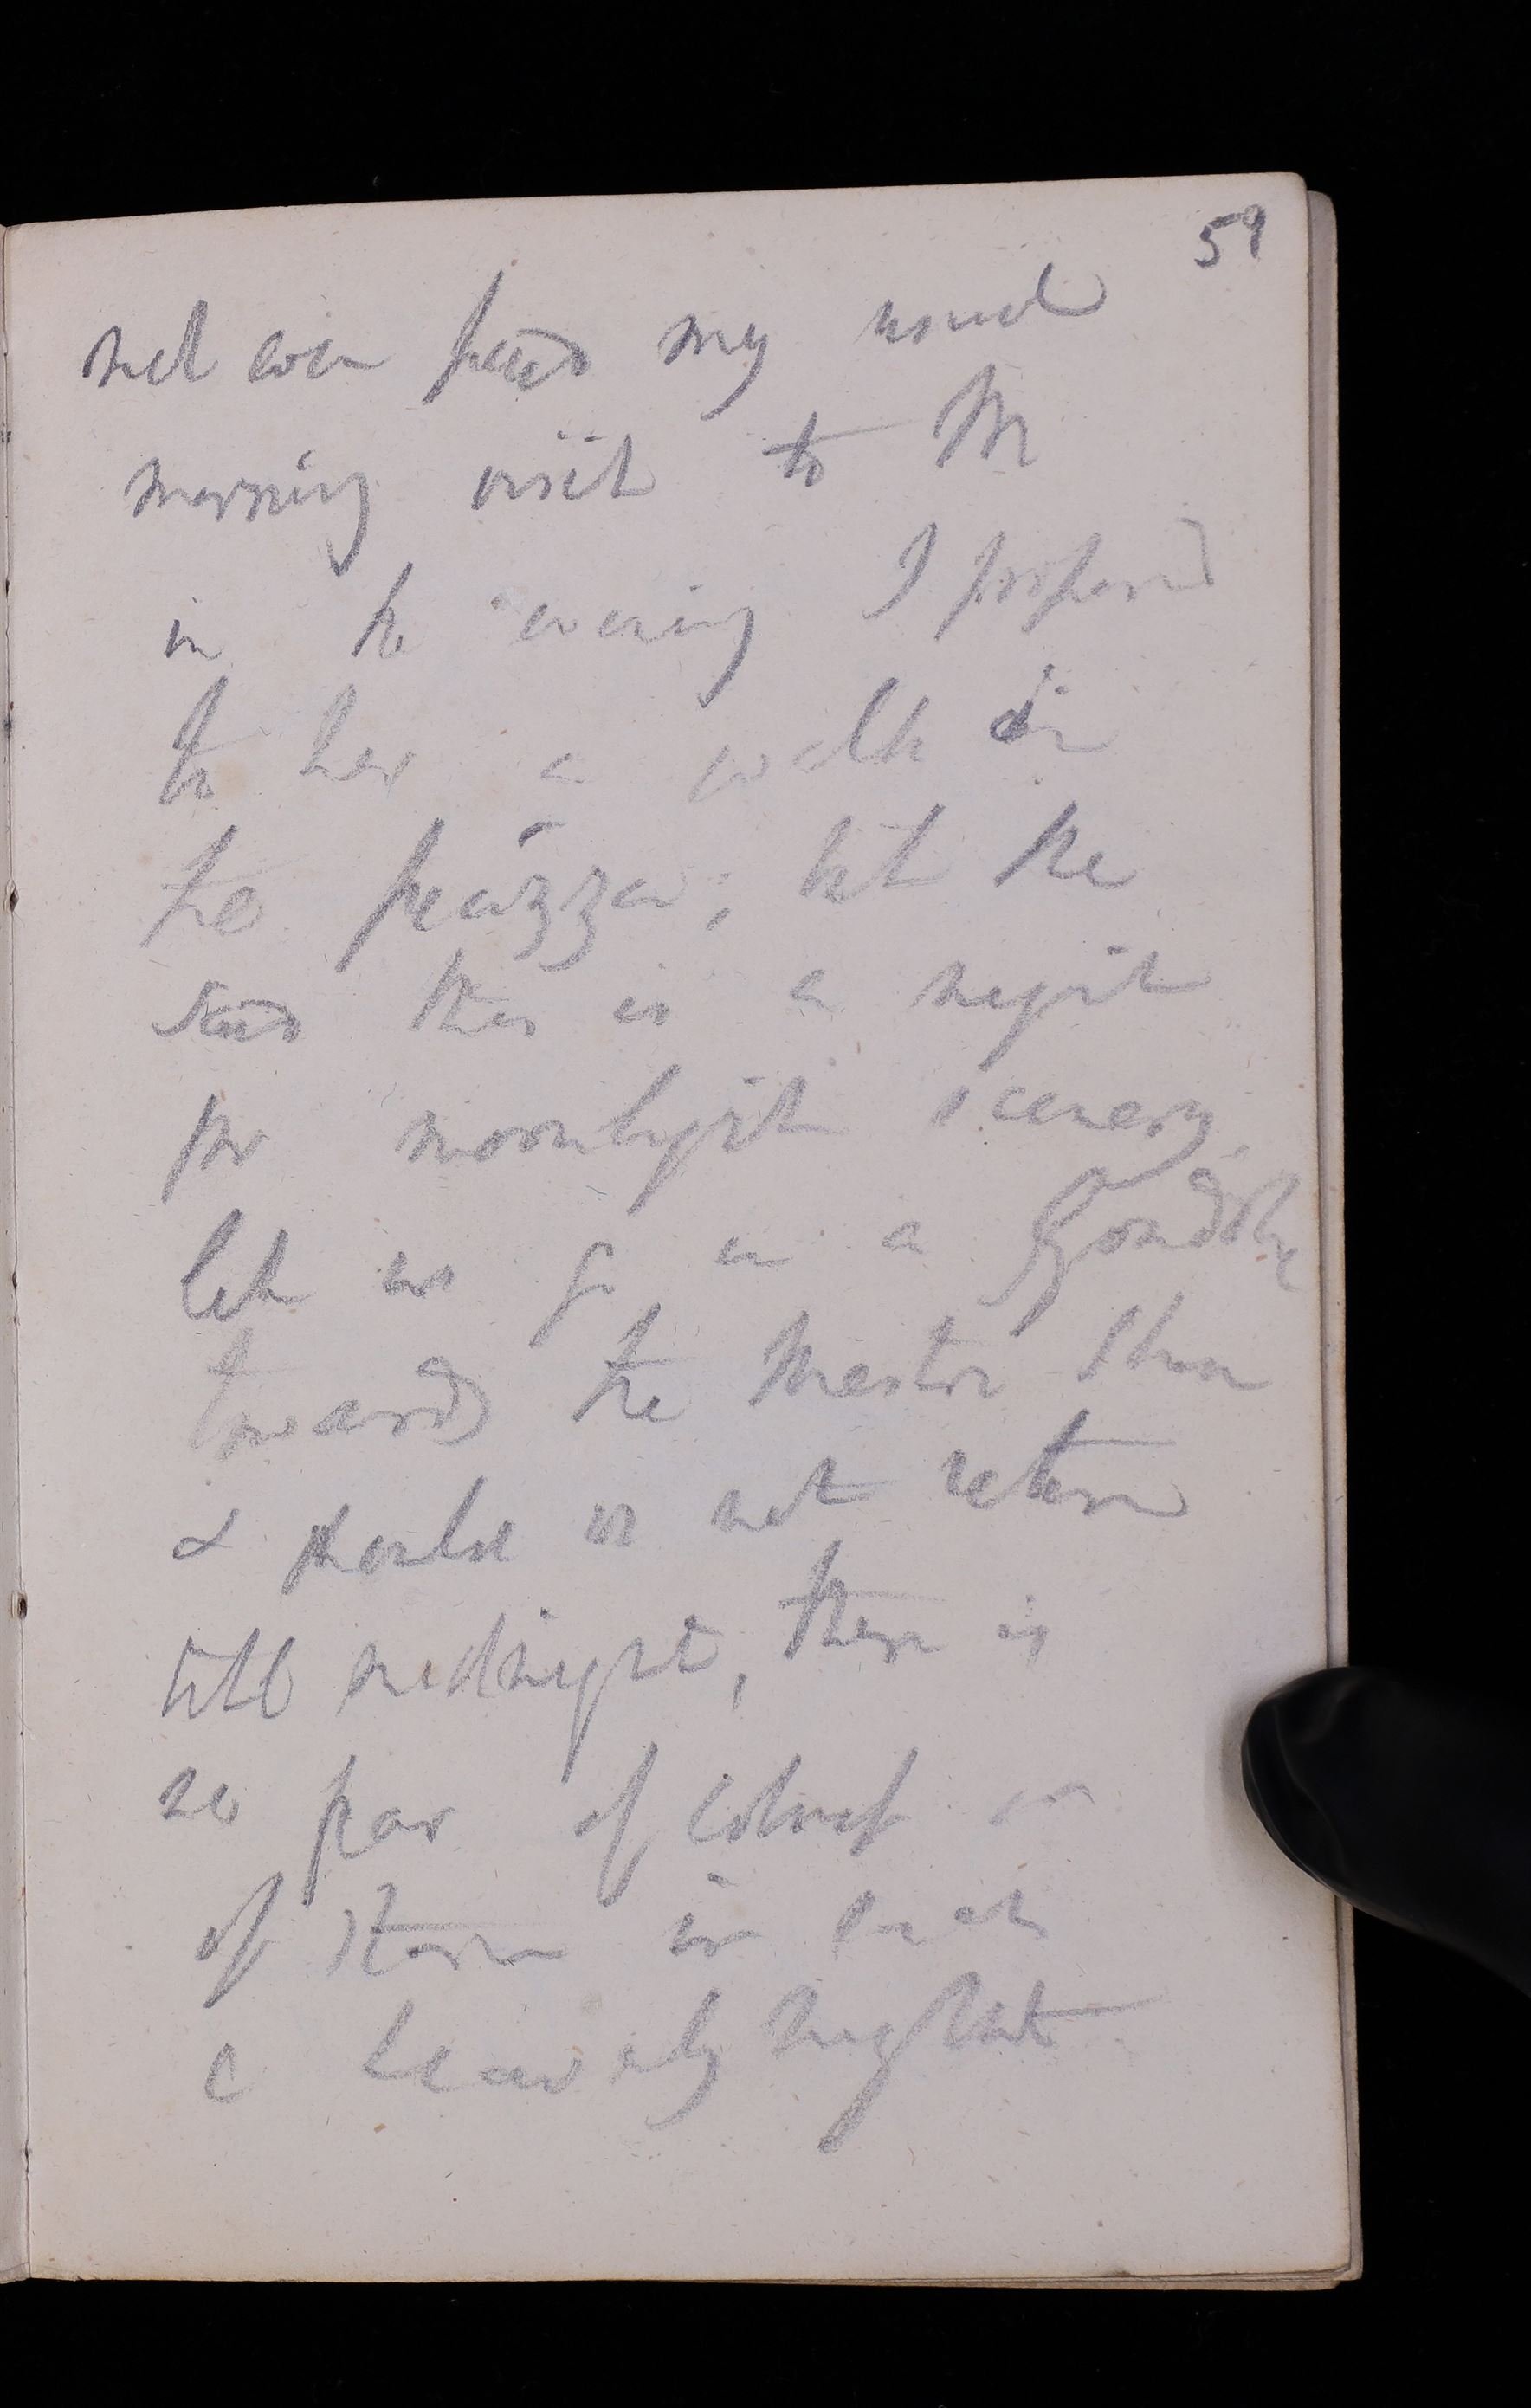 59
not even paid my usual
morning visit to M
in the evening I proposed
to her a walk in
the piazza; but she
said this is a night
for moonlight scenery,
let us go in a Gondola
towards the Mestre shore
& should we not return
till midnight, there is
no fear of cold or
of storm in such
a heavenly night